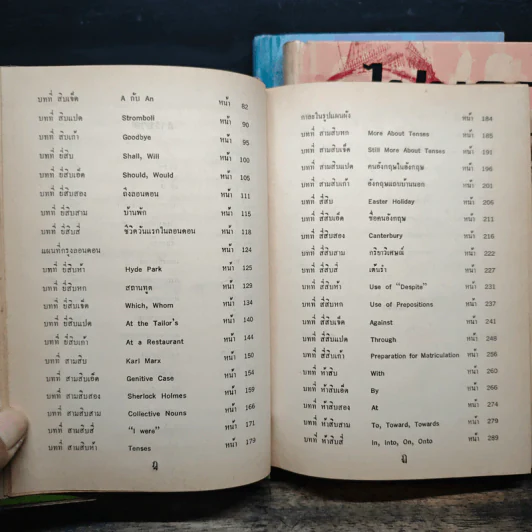 บทที่ ยี่สิบเจ็ด A กับ An หน้า 82
บทที่ สิบแปด Stromboli หน้า 90
บทที่ สิบเก้า Goodbye หน้า 95
บทที่ ยี่สิบ Shall, Will หน้า 100
บทที่ ยี่สิบเอ็ด Should, Would หน้า 105
บทที่ ยี่สิบสอง ถึงลอนดอน หน้า 111
บทที่ ยี่สิบสาม บ้านพัก หน้า 115
บทที่ ยี่สิบสี่ ชีวิตวันแรกในลอนดอน หน้า 118
แผนที่กรุงลอนดอน หน้า 124
บทที่ ยี่สิบห้า Hyde Park หน้า 125
บทที่ ยี่สิบหก สถานทูต หน้า 129
บทที่ ยี่สิบเจ็ด Which, Whom หน้า 134
บทที่ ยี่สิบแปด At the Tailor's หน้า 140
บทที่ ยี่สิบเก้า At a Restaurant หน้า 144
บทที่ สามสิบ Karl Marx หน้า 150
บทที่ สามสิบเอ็ด Genitive Case หน้า 154
บทที่ สามสิบสอง Sherlock Holmes หน้า 159
บทที่ สามสิบสาม Collective Nouns หน้า 166
บทที่ สามสิบสี่ "I were" หน้า 171
บทที่ สามสิบห้า Tenses หน้า 179
กาละในรูปแผนผัง หน้า 184
บทที่ สามสิบหก More About Tenses หน้า 185
บทที่ สามสิบเจ็ด Still More About Tenses หน้า 191
บทที่ สามสิบแปด คนอังกฤษในอังกฤษ หน้า 196
บทที่ สามสิบเก้า อังกฤษแถบบ้านนอก หน้า 201
บทที่ สี่สิบ Easter Holiday หน้า 206
บทที่ สี่สิบเอ็ด ชื่อคนอังกฤษ หน้า 211
บทที่ สี่สิบสอง Canterbury หน้า 216
บทที่ สี่สิบสาม กริยาวิเศษณ์ หน้า 222
บทที่ สี่สิบสี่ เต้นรำ หน้า 227
บทที่ สี่สิบห้า Use of "Despite" หน้า 231
บทที่ สี่สิบหก Use of Prepositions หน้า 237
บทที่ สี่สิบเจ็ด Against หน้า 241
บทที่ สี่สิบแปด Through หน้า 248
บทที่ สี่สิบเก้า Preparation for Matriculation หน้า 256
บทที่ ห้าสิบ With หน้า 260
บทที่ ห้าสิบเอ็ด By หน้า 266
บทที่ ห้าสิบสอง At หน้า 274
บทที่ ห้าสิบสาม To, Toward, Towards หน้า 279
บทที่ ห้าสิบสี่ In, Into, On, Onto หน้า 289